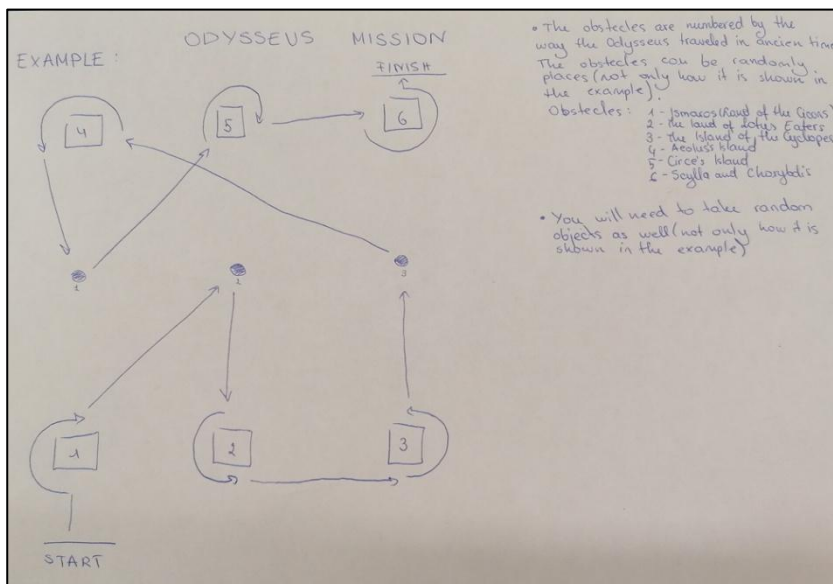 ODYSSEUS MISSION
EXAMPLE:
FINISH
4
5
6
1
2
3
1
2
3
START
• The obstecles are numbered by the
way the Odysseus traveled in ancien time
The obstecles can be randomly
places (not only how it is shown in
the example).
Obstecles: 1 - Ismaros (Land of the Cicons)
2 - the land of Lotus Eaters
3 - The Island of the Cyclopes
4 - Aeolus's Island
5 - Circe's Island
6 - Scylla and Charybdis
• You will need to take random
objects as well (not only how it is
shown in the example)